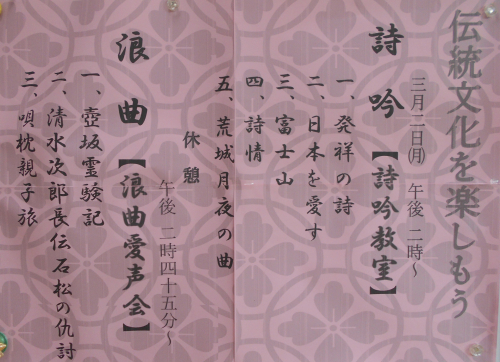 伝統文化を楽しもう
三月二日㈪　午後　二時～
詩　吟【詩吟教室】
一、発祥の詩
二、日本を愛す
三、富士山
四、詩情
五、荒城月夜の曲
休　憩
午後　二時四十五分～
浪　曲【浪曲愛声会】
一、壺坂霊験記
二、清水次郎長伝 石松の仇討
三、唄枕親子旅